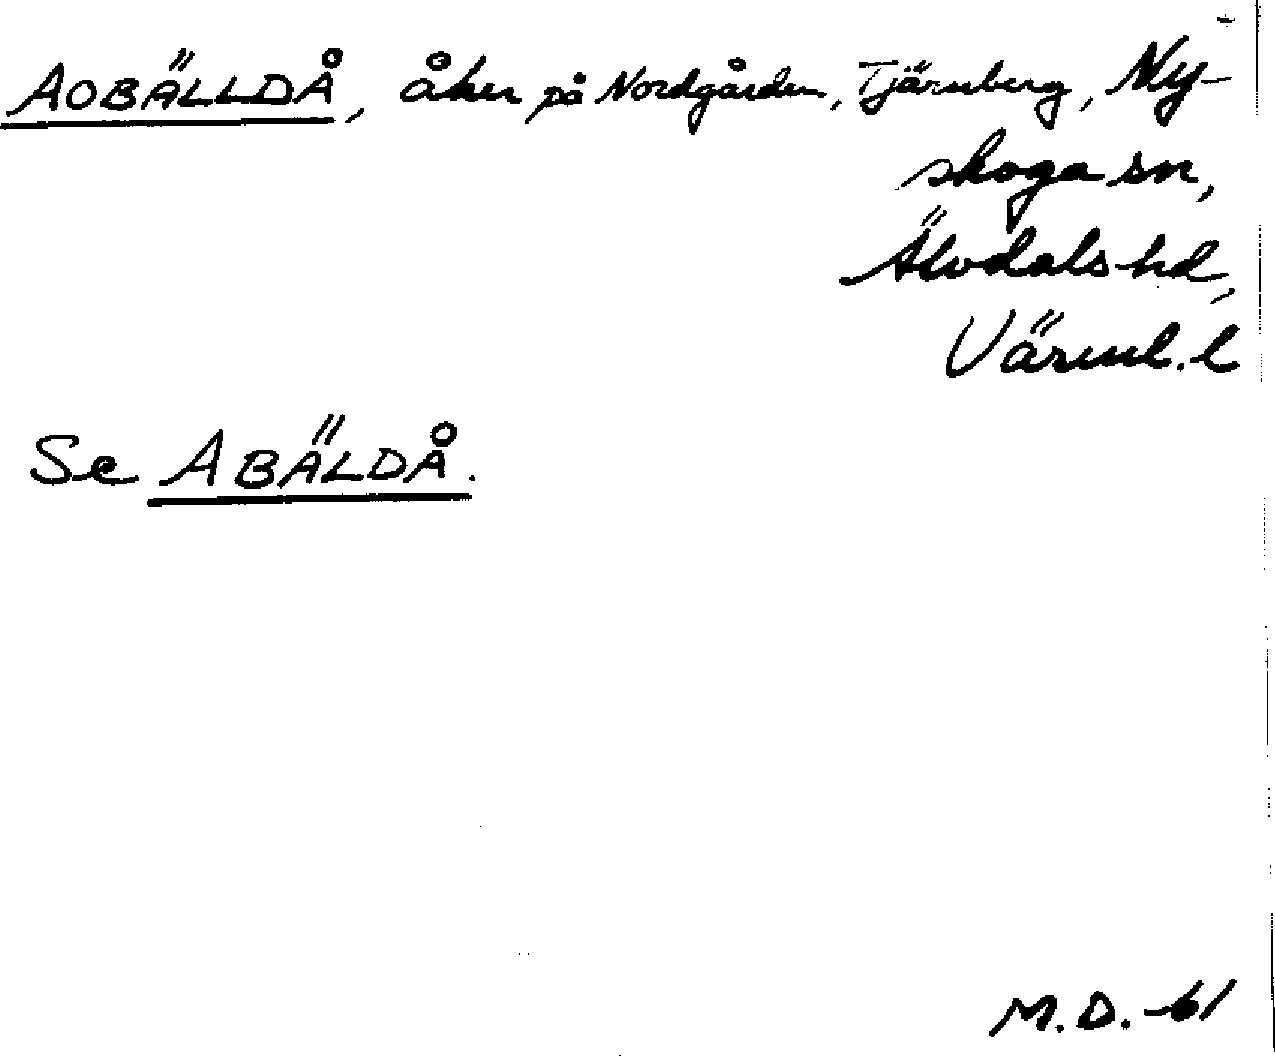 AOBÄLLDÅ, åker på Nordgården, Tjärnberg, Ny-
skoga sn,
Älvdals hd,
Värml. l
Se ABÄLDÅ.
M.D. -61